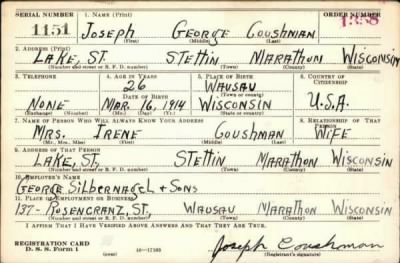 SERIAL NUMBER 1. NAME (Print) ORDER NUMBER
1151 JOSEPH GEORGE COUSHMAN 1358
(First) (Middle) (Last)
2. ADDRESS (Print)
LAKE, ST. STETTIN MARATHON WISCONSIN
(Number and street or R. F. D. number) (Town) (County) (State)
3. TELEPHONE 4. AGE IN YEARS 5. PLACE OF BIRTH 6. COUNTRY OF CITIZENSHIP
26 WAUSAU
DATE OF BIRTH (Town or county)
NONE MAR. 16, 1914 WISCONSIN U.S.A.
(Exchange) (Number) (Mo.) (Day) (Yr.) (State or country)
7. NAME OF PERSON WHO WILL ALWAYS KNOW YOUR ADDRESS 8. RELATIONSHIP OF THAT PERSON
MRS. IRENE COUSHMAN WIFE
(Mr., Mrs., Miss) (First) (Middle) (Last)
9. ADDRESS OF THAT PERSON
LAKE, ST, STETTIN MARATHON WISCONSIN
(Number and street or R. F. D. number) (Town) (County) (State)
10. EMPLOYER'S NAME
GEORGE SILBERNAGEL & SONS
11. PLACE OF EMPLOYMENT OR BUSINESS
137- ROSENCRANZ, ST. WAUSAU MARATHON WISCONSIN
(Number and street or R. F. D. number) (Town) (County) (State)
I AFFIRM THAT I HAVE VERIFIED ABOVE ANSWERS AND THAT THEY ARE TRUE.
REGISTRATION CARD Joseph Coushman
D. S. S. Form 1 (over) (Registrant's signature)